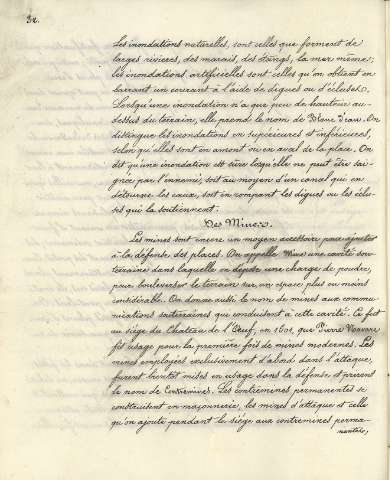 32.
Les inondations naturelles, sont celles que forment de
larges rivières, des marais, des étangs, la mer même;
les inondations artificielles sont celles qu'on obtient en
barrant un courant à l'aide de digues ou d'écluses.
Lorsqu'une inondation n'a que peu de hauteur au-
dessus du terrain, elle prend le nom de Blanc d'eau. On
distingue les inondations en supérieures et inférieures,
selon qu'elles sont en amont ou en aval de la place. On
dit qu'une inondation est sûre lorsqu'elle ne peut être sai-
gnée par l'ennemi, soit au moyen d'un canal qui en
détourne les eaux, soit en rompant les digues ou les éclu-
ses qui la soutiennent.
Des Mines.
Les mines sont encore un moyen accessoire pour ajouter
à la défense des places. On appelle Mine une cavité sou-
terraine dans laquelle on dépose une charge de poudre,
pour bouleverser le terrain sur un espace plus ou moins
considérable. On donne aussi le nom de mines aux commu-
nications souterraines qui conduisent à cette cavité. Ce fut
au siège du Chateau de l'Œuf, en 1501, que Pierre Navarre
fit usage pour la première fois de mines modernes. Les
mines employées exclusivement d'abord dans l'attaque,
furent bientôt mises en usage dans la défense et prirent
le nom de Contremines. Les contremines permanentes se
construisent en maçonnerie, les mines d'attaque et celles
qu'on ajoute pendant le siège aux contremines perma-
nentes,